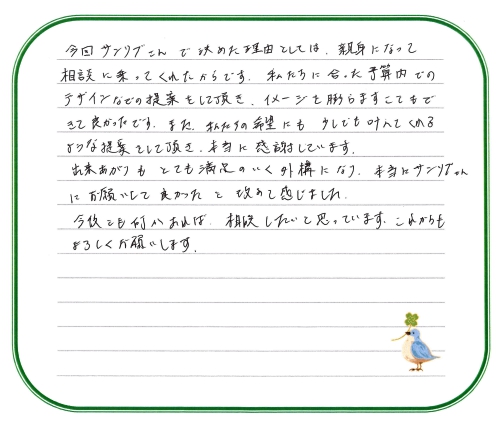 今回サンリブさんで決めた理由としては、親身になって
相談に乗ってくれたからです。私たちに合った予算内での
デザインなどの提案をして頂き、イメージを膨らますこともで
きて良かったです。また、私たちの希望にも少しでも叶えてくれる
ような提案をして頂き、本当に感謝しています。
出来あがりもとても満足のいく外構になり、本当にサンリブさん
にお願いして良かったと改めて感じました。
今後とも何かあれば、相談したいと思っています。これからも
よろしくお願いします。